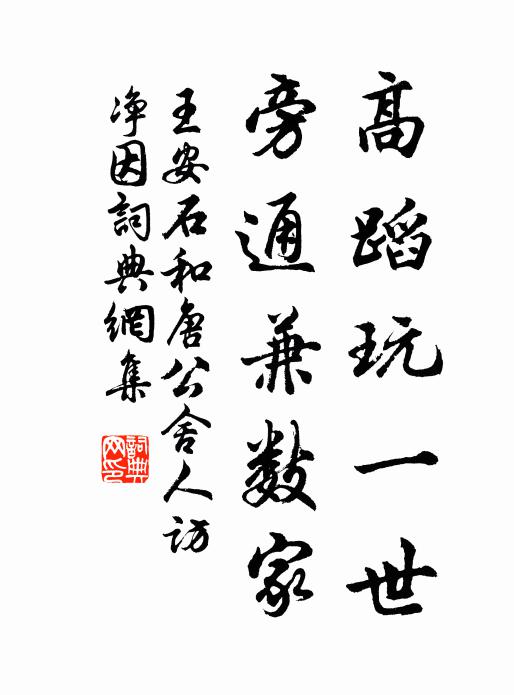 高蹈玩一世
旁通兼數家
王安石和唐公舍人訪
净因詞典網集
詞典网印